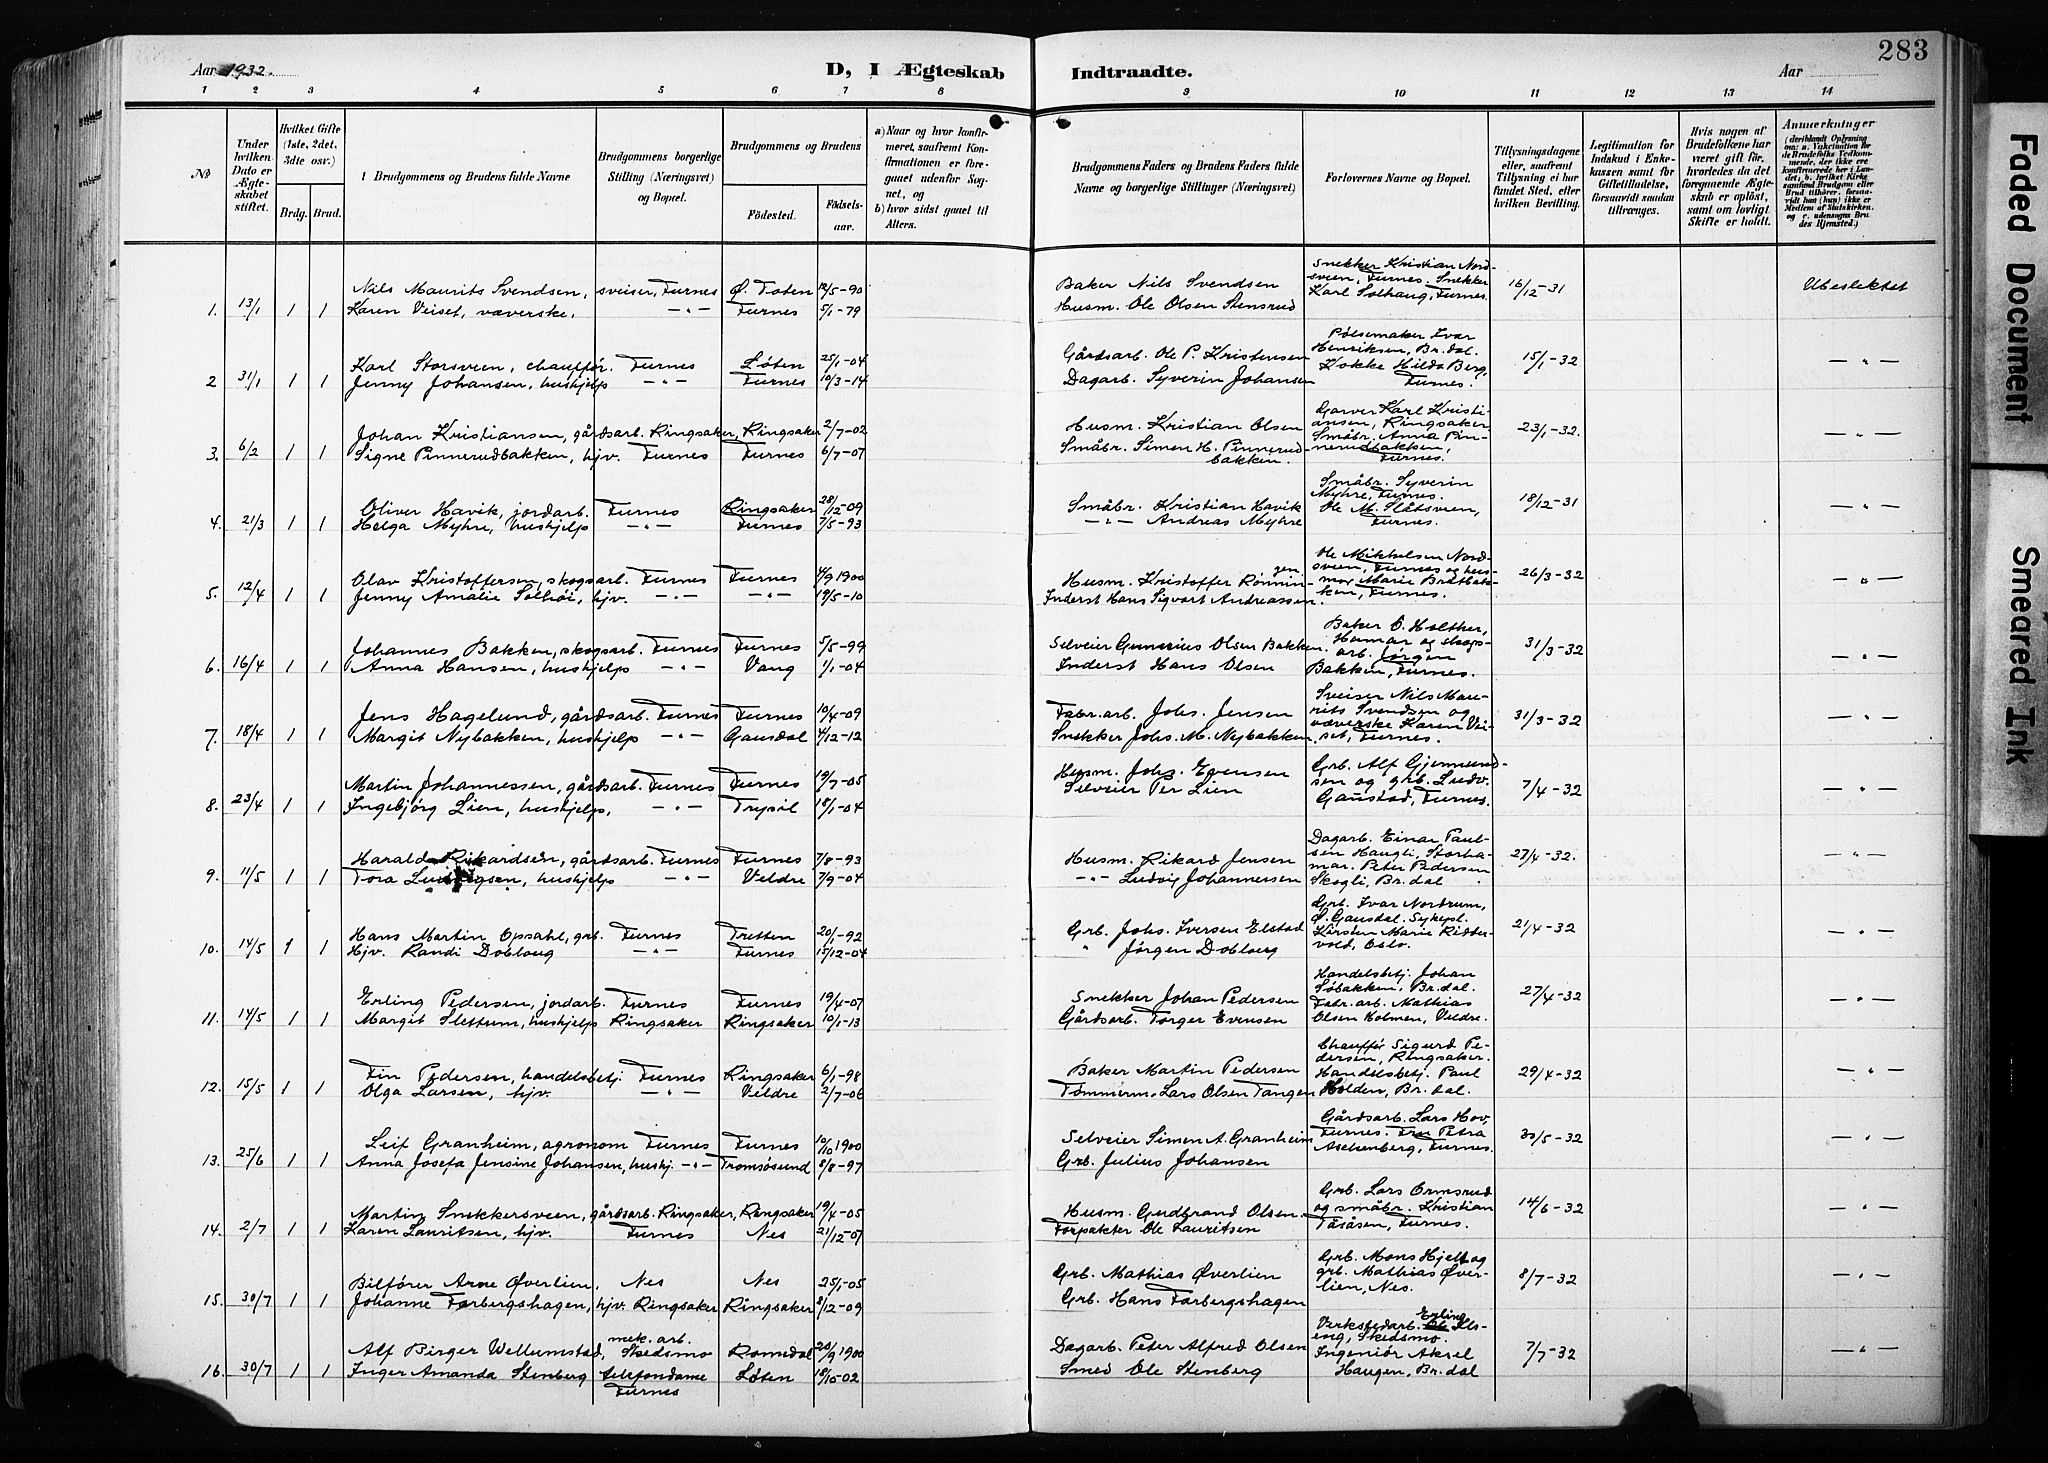 Aar 1932.
D, I Ægteskab Indtraadte.
Aar
283
1 2 3 4 5 6 7 8 9 10 11 12 13 14
No
Under hvilken Dato er Ægteskabet stiftet.
Hvilket Gifte (1ste, 2det, 3dte osv.)
Brdg. Brud.
Brudgommens og Brudens fulde Navne
Brudgommens borgerlige Stilling (Næringsvei) og Bopæl.
Brudgommens og Brudens
Födested.
Födselsaar.
a) Naar og hvor konfirmeret, saafremt Konfirmationen er foregaaet udenfor Sognet, og
b) hvor sidst gaaet til Alters.
Brudgommens Faders og Brudens Faders fulde Navne og borgerlige Stillinger (Næringsvei)
Forlovernes Navne og Bopæl.
Tillysningsdagene eller, saafremt Tillysning ei har fundet Sted, efter hvilken Bevilling.
Legitimation for Indskud i Enkekassen samt for Giftetilladelse, forsaavidt saadan tiltrænges.
Hvis nogen af Brudefolkene har været gift før, hvorledes da det foregaaende Ægteskab er opløst, samt om lovligt Skifte er holdt.
Anmerkninger (deriblandt Oplysning om: a. Vakcination for de Brudefolks Vedkommende, der ikke ere konfirmerede her i Landet, b. hvilket Kirkesamfund Brudgom eller Brud tilhører, forsaavidt han (hun) ikke er Medlem af Statskirken, og c. udensogns Brudes Hjemsted.)
1. 13/1 1 1 Nils Maurits Svendsen, sveiser, Furnes Ø. Toten 12/5-90 Baker Nils Svendsen Snekker Kristian Nordsveen, Furnes. Snekker Karl Solhaug, Furnes. 16/12-31 Ubeslektet
Karen Veiset, væverske, -"- Furnes 5/1-79 Husm. Ole Olsen Stensrud
2 31/1 1 1 Karl Storsveen, chauffør. Furnes Løten 25/1-04 Gårdsarb. Ole P. Kristensen Pølsemaker Ivar Henriksen, Br.dal. Kokke Hilda Berg, Furnes. 15/1-32 -"-
Jenny Johansen, hushjelp -"- Furnes 10/3-14 Dagarb. Syverin Johansen
3. 6/2 1 1 Johan Kristiansen, gårdsarb. Ringsaker, Ringsaker 2/7-02 Husm. Kristian Olsen Garver Karl Kristiansen, Ringsaker Småbr. Anna Pinnerudbakken, Furnes. 23/1-32. -"-
Signe Pinnerudbakken, hjv. Furnes Furnes 6/7-07 Småbr. Simen H. Pinnerudbakken.
4. 21/3 1 1 Oliver Havik, jordarb. Furnes Ringsaker 28/12-09 Småbr. Kristian Havik Småbr. Syverin Myhre, Furnes. Ole M. Slåtsveen, Furnes. 18/12-31 -"-
Helga Myhre, hushjelp -"- Furnes 7/5-93 -"- Andreas Myhre
5. 12/4 1 1 Olav Kristoffersen, skogsarb. Furnes Furnes 4/9 1900 Husm. Kristoffer Rønningen Ole Mikkelsen Nordsveen, Furnes og husmor Marie Bråtbakken, Furnes. 26/3-32 -"-
Jenny Amalie Solhøi, hjv. -"- -"- 19/5-10 Inderst Hans Sigvart Andreassen.
6. 16/4 1 1 Johannes Bakken, skogsarb. Furnes Furnes 5/5-99 Selveier Gunnerius Olsen Bakken. Baker O. Holther, Hamar og skogsarb. Jørgen Bakken, Furnes. 31/3-32 -"-
Anna Hansen, hushjelp -"- Vang 1/1-04 Inderst Hans Olsen
7. 18/4 1 1 Jens Hagelund, gårdsarb. Furnes Furnes 10/4-09 Fabr.arb. Johs. Jensen Sveiser Nils Maurits Svendsen og væverske Karen Veiset, Furnes. 31/3-32 -"-
Margit Nybakken, hushjelp -"- Gausdal 4/12-12 Snekker Johs. M. Nybakken
8. 23/4 1 1 Martin Johannessen, gårdsarb. Furnes Furnes 19/7-05 Husm. Johs. Evensen Grb. Alf Gjermundsen og grb. Ludv. Gaustad, Furnes. 7/4-32 -"-
Ingebjørg Lien, hushjelp, -"- Trysil 18/1-04 Selveier Per Lien
9. 11/5 1 1 Harald Rikardsen, gårdsarb. Furnes Furnes 7/8-93 Husm. Rikard Jensen Dagarb. Einar Paulsen Haugli, Storhamar. Peter Pedersen Skogli, Br.dal 27/4-32. -"-
Tora Ludvigsen, hushjelp -"- Veldre 7/9-04 -"- Ludvig Johannessen
10. 14/5 1 1 Hans Martin Opsahl, grb. Furnes Tretten 20/1-92 Grb. Johs. Iversen Elstad Grb. Ivar Nordrum, Ø. Gausdal. Sykepl. Kirsten Marie Riddervold, Oslo. 21/4-32 -"-
Hjv. Randi Dobloug -"- Furnes 15/12-04 " Jörgen Dobloug
11. 14/5 1 1 Erling Pedersen, jordarb. Furnes Furnes 19/4-07 Snekker Johan Pedersen Handelsbetj. Johan Søbakken, Br.dal. Fabr.arb. Mathias Olsen Holmen, Veldre. 27/4-32 -"-
Margit Slettum, hushjelp Ringsaker Ringsaker 10/1-13 Gårdsarb. Torger Evensen
12. 15/5 1 1 Fin Pedersen, handelsbetj. Furnes Ringsaker 6/1-98 Baker Martin Pedersen Chauffør Sigurd Pedersen, Ringsaker. Handelsbetj. Paul Holden, Br.dal. 29/4-32 -"-
Olga Larsen, hjv. -"- Veldre 2/7-06 Tömmerm. Lars Olsen Tangen
13. 25/6 1 1 Leif Granheim, agronom Furnes Furnes 10/10 1900 Selveier Simen A. Granheim Gårdsarb. Lars Hov, Furnes. Fru Petra Aschenberg, Furnes. 30/5-32 -"-
Anna Josefa Jensine Johansen, hushj. -"- Tromsøsund 8/8-97 Grb. Julius Johansen
14. 2/7 1 1 Martin Snekkersveen, gårdsarb. Ringsaker, Ringsaker 19/4-05 Husm. Gudbrand Olsen. Grb. Lars Ormsrud og småbr. Kristian Tåsåsen, Furnes. 14/6-32 -"-
Karen Lauritsen, hjv. Furnes Nes 21/12-07 Forpakter Ole Lauritsen
15. 30/7 1 1 Bilfører Arne Øverlien, Nes Nes 25/1-05 Grb. Mathias Øverlien Grb. Mons Hjelt og grb. Mathias Øverlien, Nes. 8/7-32 -"-
Johanne Farbergshagen, hjv. Ringsaker Ringsaker 8/12-09 Grb. Hans Farbergshagen
16. 30/7 1 1 Alf Birger Wellumstad, mek. arb. Skedsmo Romedal 20/9 1900 Dagarb. Peter Alfred Olsen Verkstedarb. Erling Ilseng, Skedsmo. Ingeniör Aksel Haugen, Br.dal 7/7-32 -"-
Inger Amanda Stenberg telefondame Furnes Løten 18/10-02 Smed Ole Stenberg
Faded Document
Smeared Ink